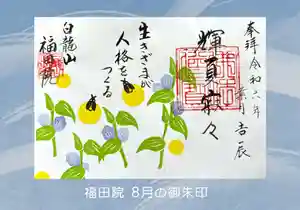 奉拝 令和六年
葉月吉辰
輝真寂々
生きざまが
人格を
つくる
白龍山
福田院
福田院 8月の御朱印